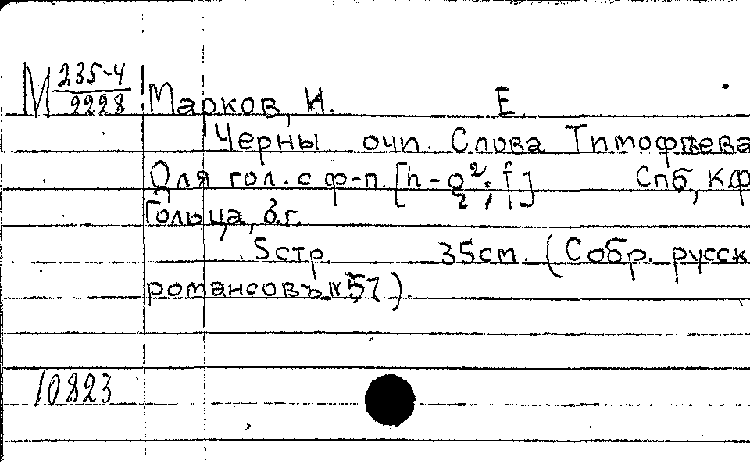 М 235-4
2228
Марков, И. Е.
Черны очи. Слова Тимофѣева
Для гол. с ф-п. [h-g²; f]
Спб, К.Ф.
Гольца, б.г.
5 стр. 35 см. (Собр. русск
романсовъ № 57).
10823